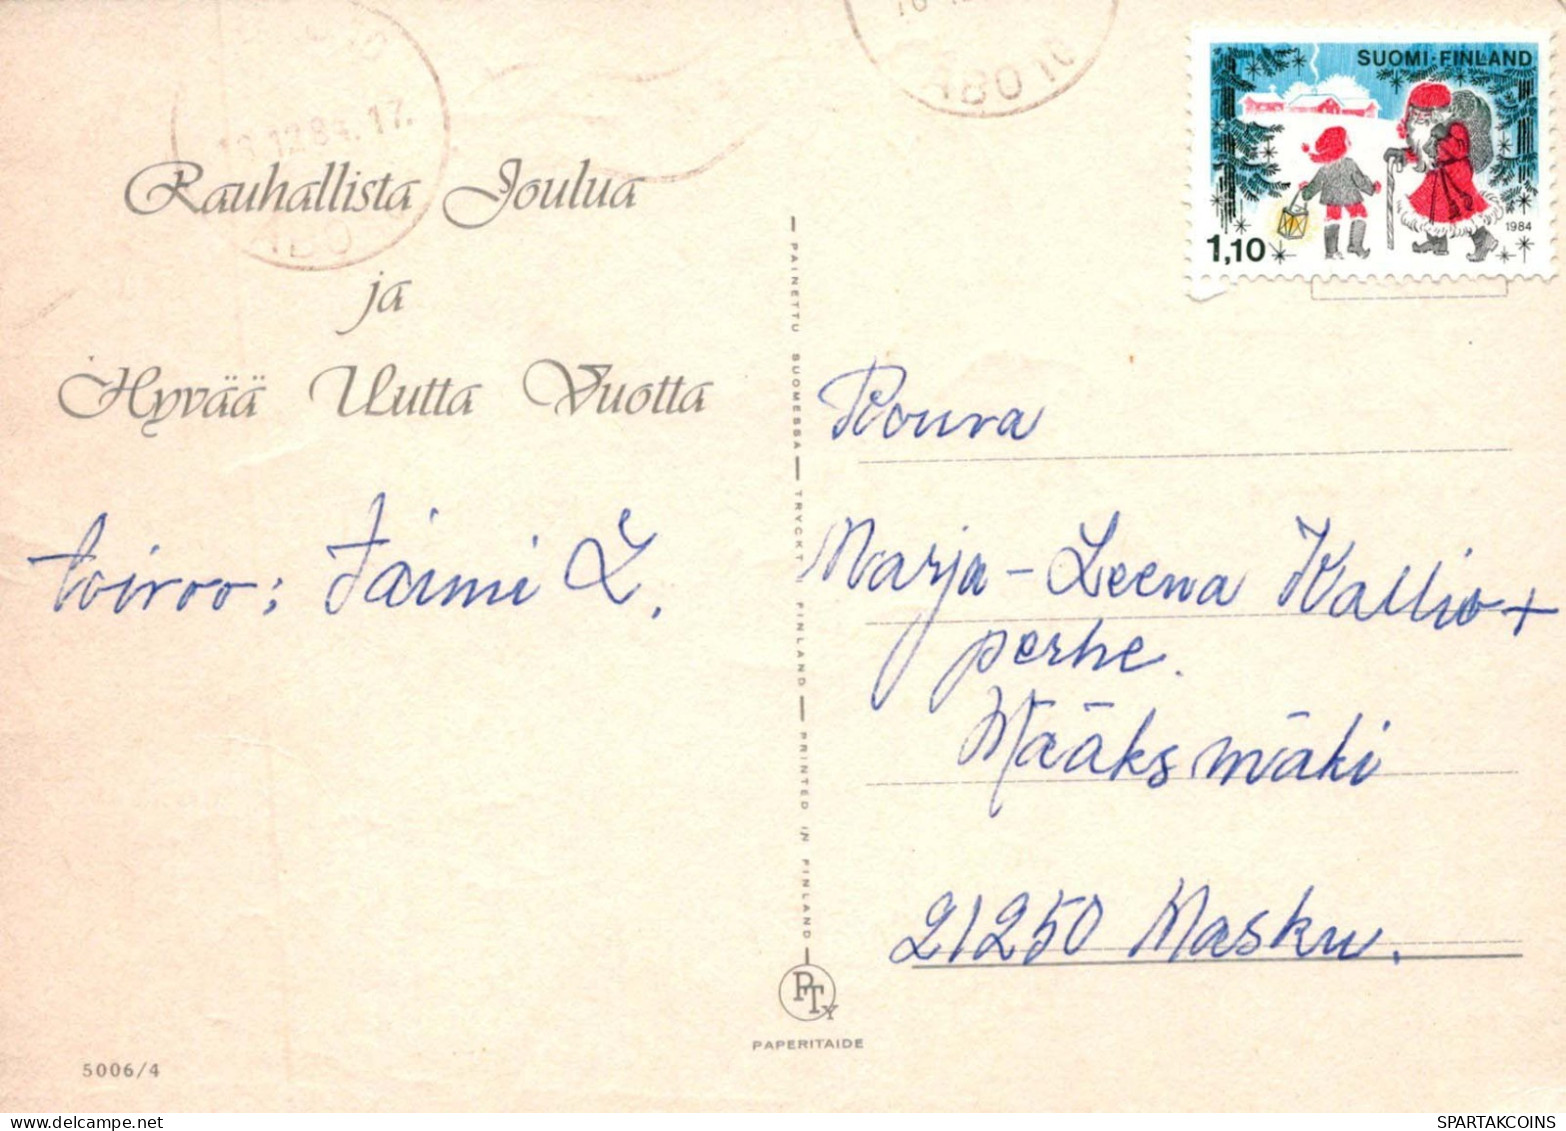 16.12.84.17.
ABO
ABO 10
SUOMI-FINLAND
1984
1,10
Rauhallista Joulua
ja
Hyvää Uutta Vuotta
toivoo: Jaimi L.
PAINETTU SUOMESSA — TRYCKT I FINLAND — PRINTED IN FINLAND
Rouva
Marja-Leena Kallio +
perhe.
Wääksmäki
21250 Masku.
PTy
PAPERITAIDE
5006/4
SPARTAKCOINS